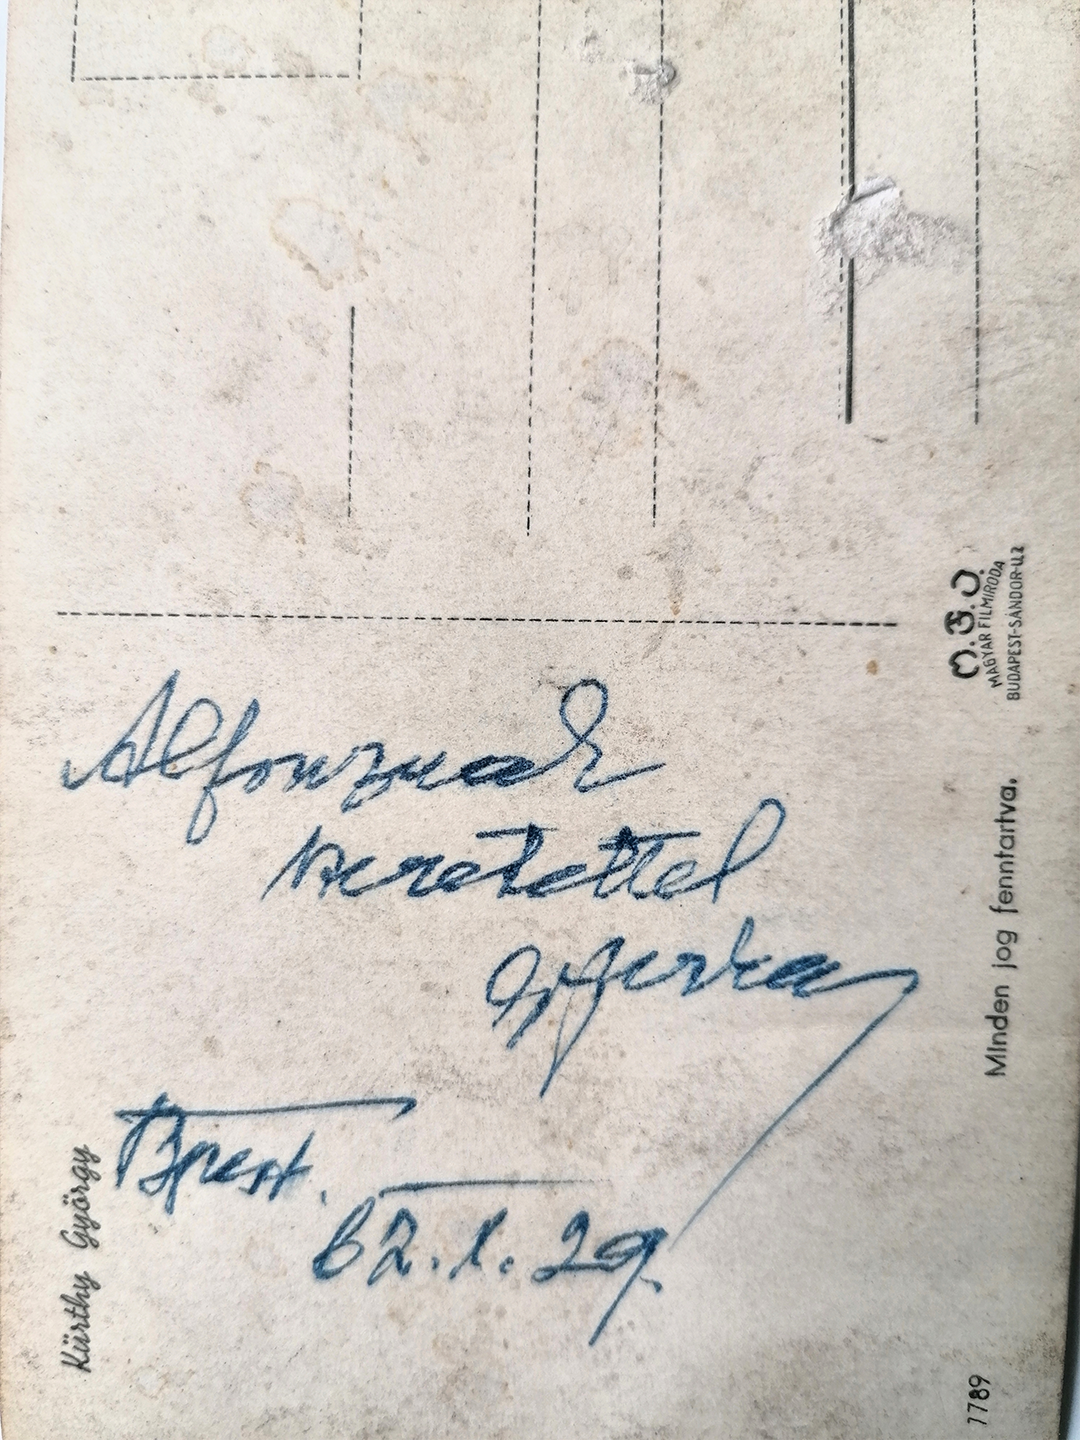 Alfonznak
szeretettel
Gyurka
Bpest.
62. X. 29.
Kürthy György
M.F.I.
MAGYAR FILMIRODA
BUDAPEST-SÁNDOR-U.2
Minden jog fenntartva.
7789